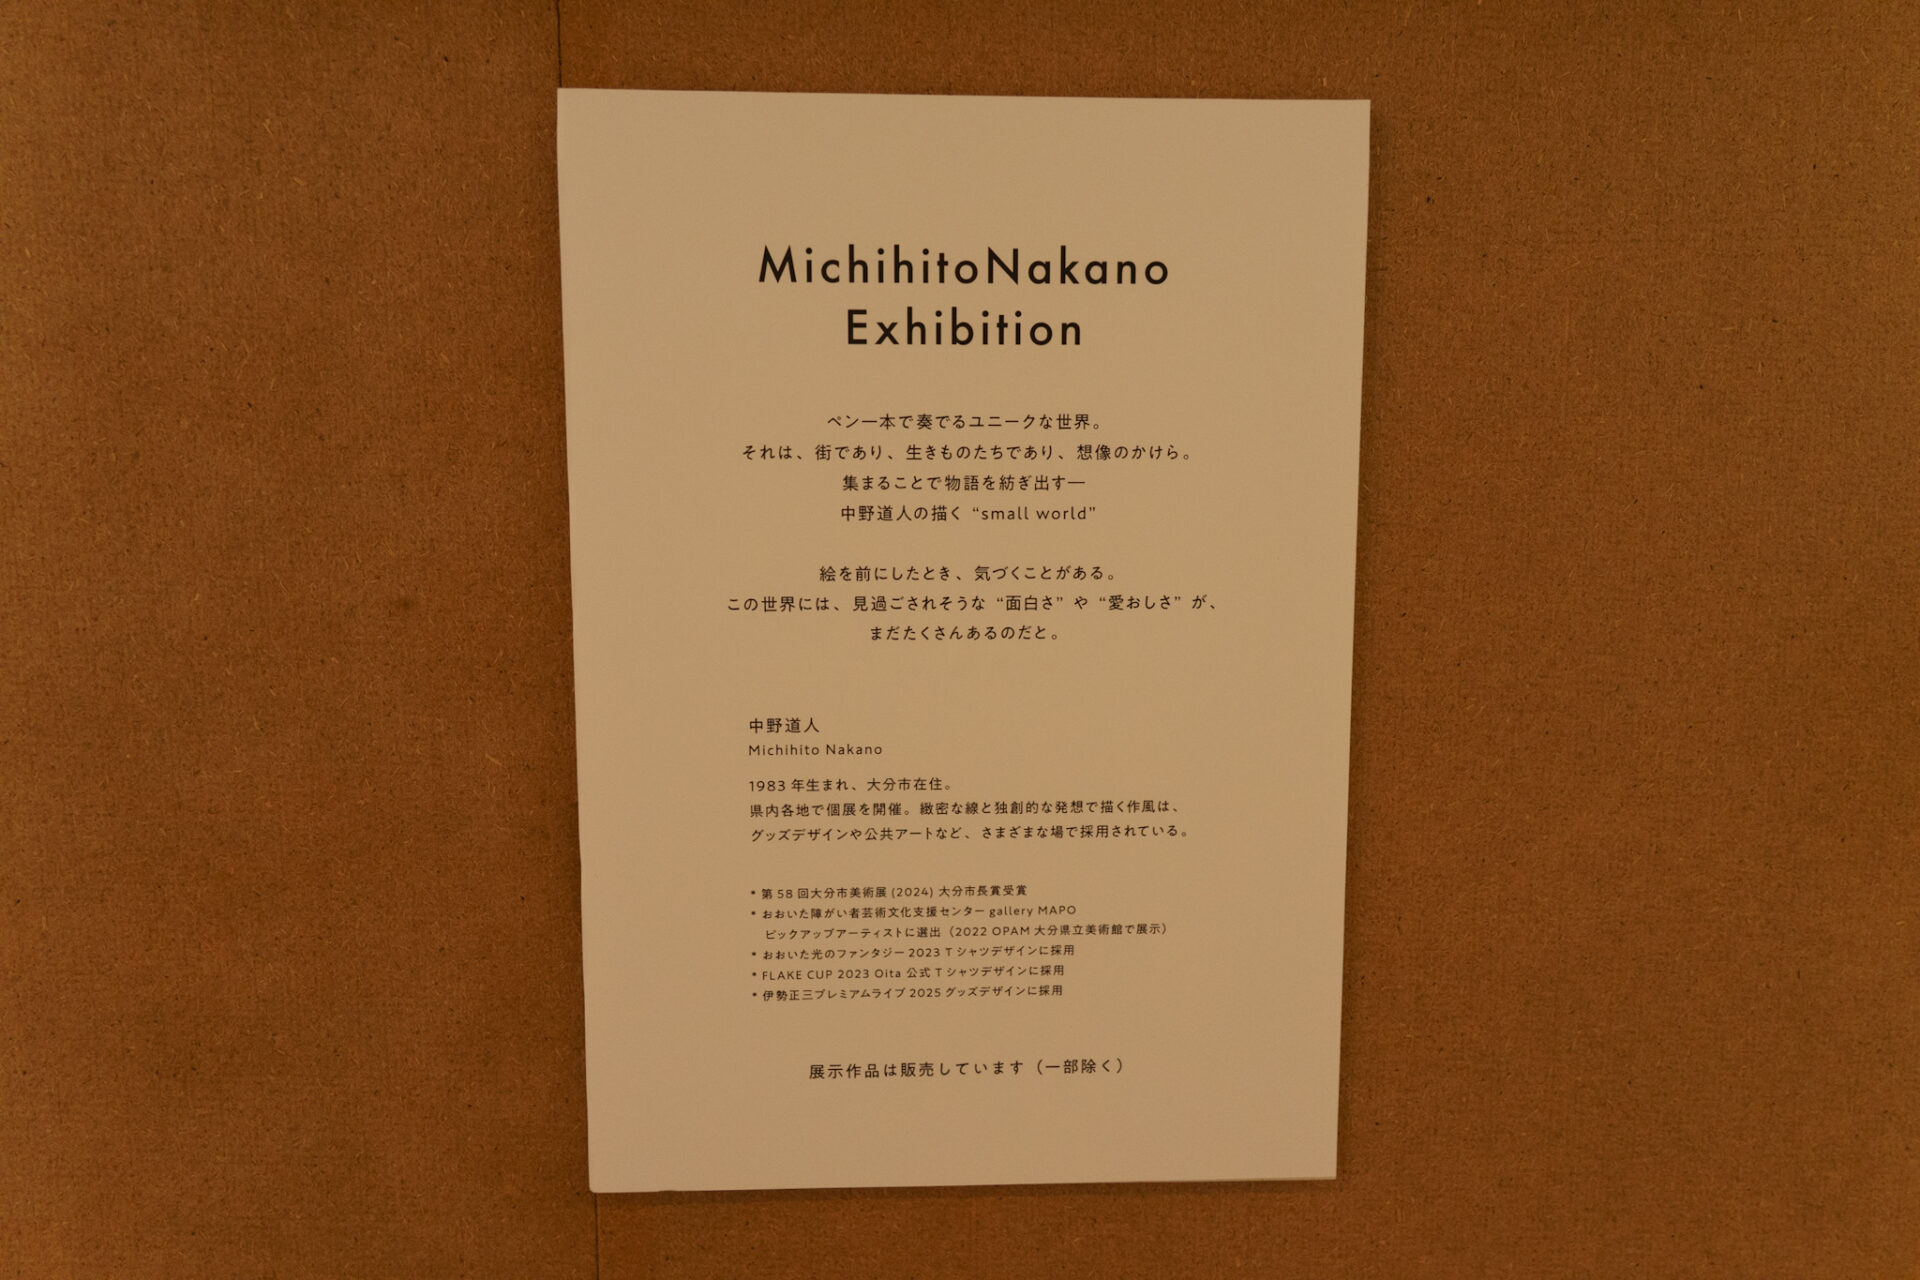 MichihitoNakano
Exhibition
ペン一本で奏でるユニークな世界。
それは、街であり、生きものたちであり、想像のかけら。
集まることで物語を紡ぎ出す—
中野道人の描く “small world”
絵を前にしたとき、気づくことがある。
この世界には、見過ごされそうな “面白さ” や “愛おしさ” が、
まだたくさんあるのだと。
中野道人
Michihito Nakano
1983 年生まれ、大分市在住。
県内各地で個展を開催。緻密な線と独創的な発想で描く作風は、
グッズデザインや公共アートなど、さまざまな場で採用されている。
* 第 58 回大分市美術展 (2024) 大分市長賞受賞
* おおいた障がい者芸術文化支援センター gallery MAPO
ピックアップアーティストに選出（2022 OPAM 大分県立美術館で展示）
* おおいた光のファンタジー 2023 T シャツデザインに採用
* FLAKE CUP 2023 Oita 公式 T シャツデザインに採用
* 伊勢正三プレミアムライブ 2025 グッズデザインに採用
展示作品は販売しています（一部除く）